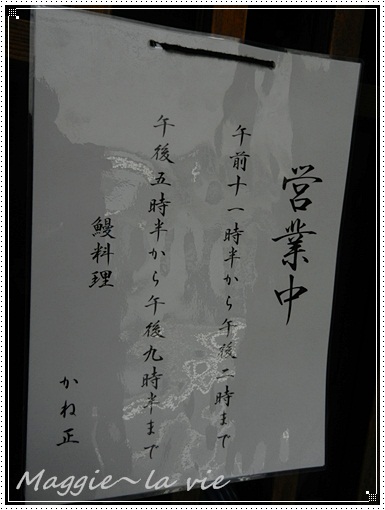 営業中
午前十一時半から午後二時まで
午後五時半から午後九時半まで
鰻料理
かね正
Maggie~la vie